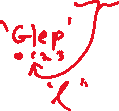 'Glep'
1 2 3
"l"